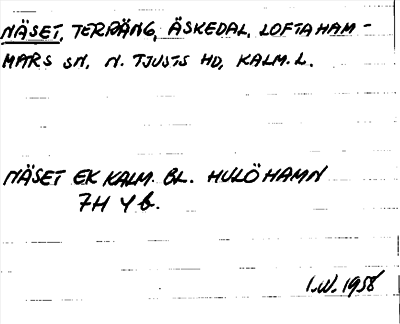 NÄSET, TERRÄNG, ÄSKEDAL, LOFTAHAM-
MARS SN, N. TJUSTS HD, KALM. L.
NÄSET EK KALM. BL. HULÖHAMN
7H Y b.
I.W. 1958